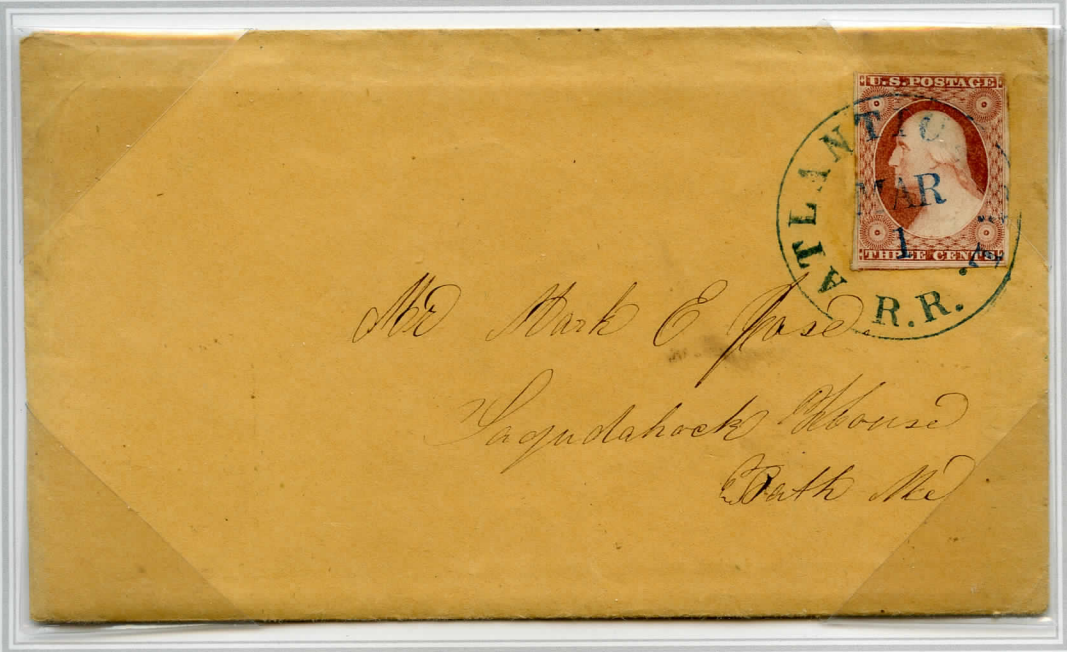 U.S. POSTAGE
THREE CENTS
ATLANTIC R.R.
MAR
1
Mr Mark E Jose
Sagudahock House
Bath Me